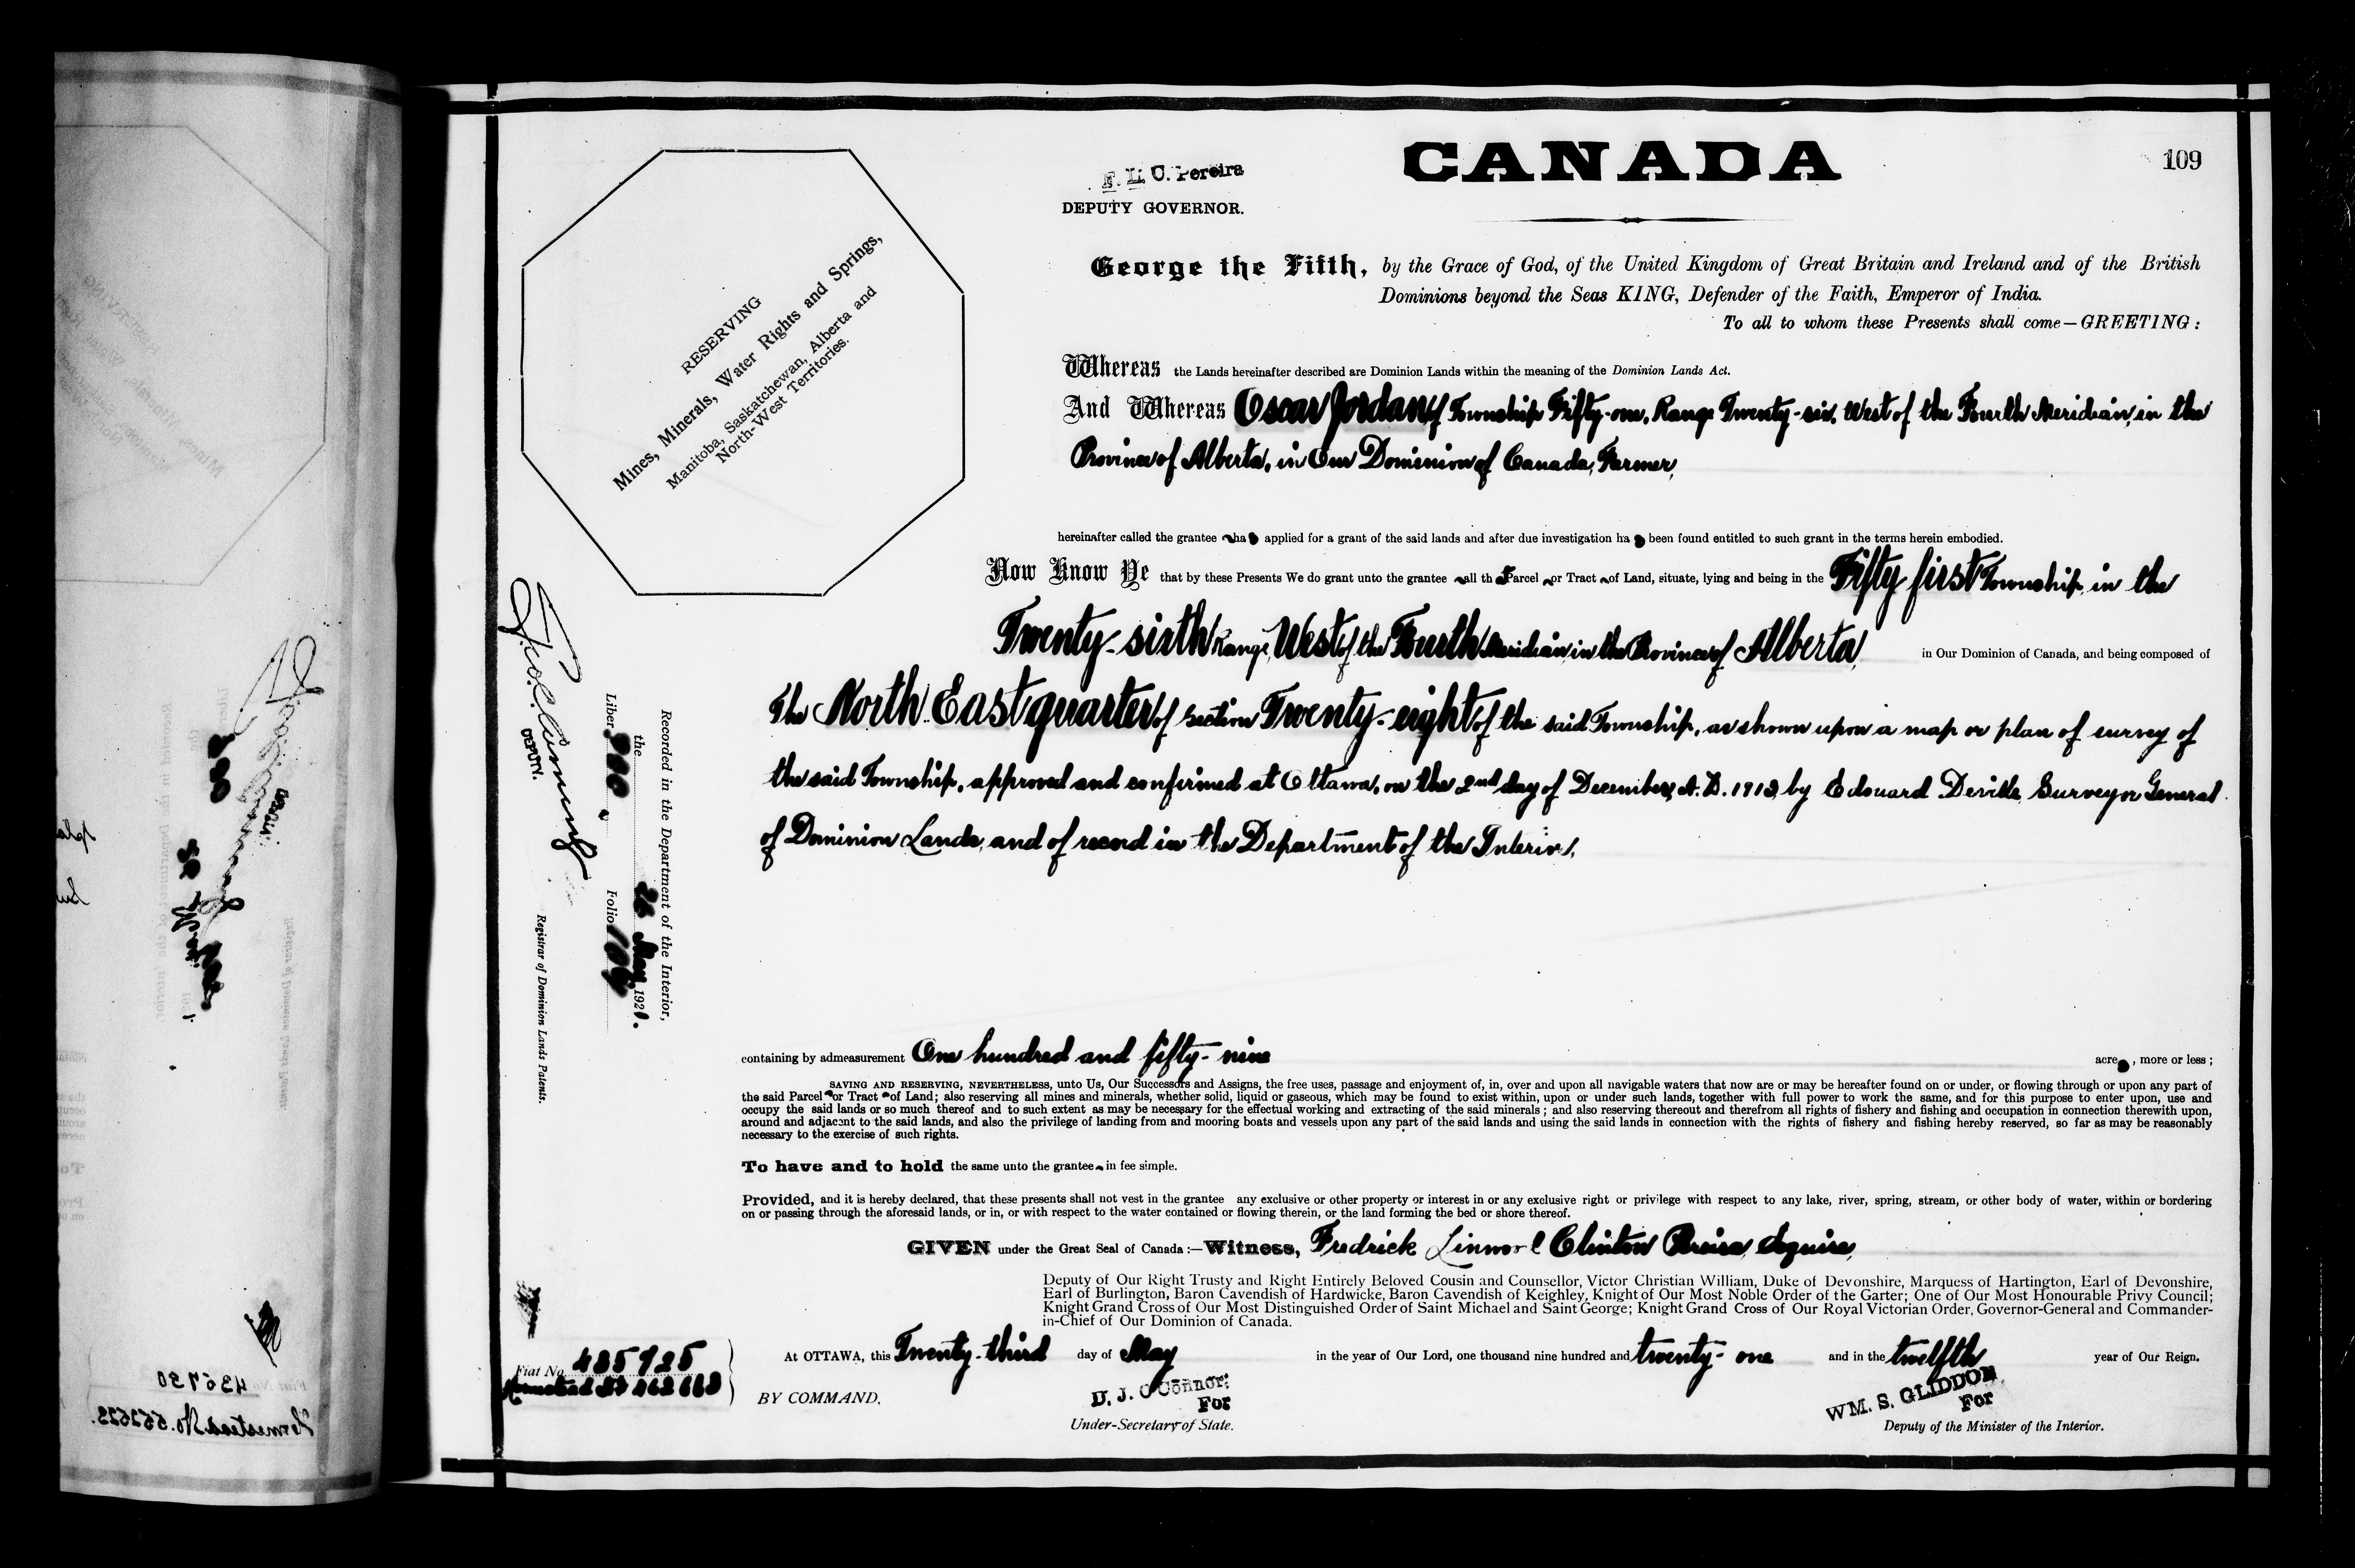 CANADA
109
F. L. C. Pereira
DEPUTY GOVERNOR.
RESERVING
Mines, Minerals, Water Rights and Springs,
Manitoba, Saskatchewan, Alberta and
North-West Territories.
George the Fifth, by the Grace of God, of the United Kingdom of Great Britain and Ireland and of the British
Dominions beyond the Seas KING, Defender of the Faith, Emperor of India.
To all to whom these Presents shall come—GREETING:
Whereas the Lands hereinafter described are Dominion Lands within the meaning of the Dominion Lands Act.
And Whereas Oscar Jordan of Township Fifty-one, Range Twenty-six, West of the Fourth Meridian, in the
Province of Alberta, in Our Dominion of Canada, Farmer,
hereinafter called the grantee ha applied for a grant of the said lands and after due investigation ha been found entitled to such grant in the terms herein embodied.
Now Know Ye that by these Presents We do grant unto the grantee all th Parcel or Tract of Land, situate, lying and being in the Fifty first Township, in the
Twenty-sixth Range, West of the Fourth Meridian, in the Province of Alberta, in Our Dominion of Canada, and being composed of
The North East quarter of section Twenty-eight of the said Township, as shown upon a map or plan of survey of
the said Township, approved and confirmed at Ottawa, on the 2nd day of December, A.D. by Edouard Deville, Surveyor General
of Dominion Lands, and of record in the Department of the Interior.
Recorded in the Department of the Interior,
the 26 May, 1921.
Liber Folio 109
DEPUTY.
Registrar of Dominion Lands Patents.
containing by admeasurement One hundred and fifty-nine acre , more or less;
SAVING AND RESERVING, NEVERTHELESS, unto Us, Our Successors and Assigns, the free uses, passage and enjoyment of, in, over and upon all navigable waters that now are or may be hereafter found on or under, or flowing through or upon any part of
the said Parcel or Tract of Land; also reserving all mines and minerals, whether solid, liquid or gaseous, which may be found to exist within, upon or under such lands, together with full power to work the same, and for this purpose to enter upon, use and
occupy the said lands or so much thereof and to such extent as may be necessary for the effectual working and extracting of the said minerals; and also reserving thereout and therefrom all rights of fishery and fishing and occupation in connection therewith upon,
around and adjacent to the said lands, and also the privilege of landing from and mooring boats and vessels upon any part of the said lands and using the said lands in connection with the rights of fishery and fishing hereby reserved, so far as may be reasonably
necessary to the exercise of such rights.
To have and to hold the same unto the grantee in fee simple.
Provided, and it is hereby declared, that these presents shall not vest in the grantee any exclusive or other property or interest in or any exclusive right or privilege with respect to any lake, river, spring, stream, or other body of water, within or bordering
on or passing through the aforesaid lands, or in, or with respect to the water contained or flowing therein, or the land forming the bed or shore thereof.
GIVEN under the Great Seal of Canada:—Witness, Fredrick Clinton Pereira, Esquire,
Deputy of Our Right Trusty and Right Entirely Beloved Cousin and Counsellor, Victor Christian William, Duke of Devonshire, Marquess of Hartington, Earl of Devonshire,
Earl of Burlington, Baron Cavendish of Hardwicke, Baron Cavendish of Keighley, Knight of Our Most Noble Order of the Garter; One of Our Most Honourable Privy Council;
Knight Grand Cross of Our Most Distinguished Order of Saint Michael and Saint George; Knight Grand Cross of Our Royal Victorian Order, Governor-General and Commander-
in-Chief of Our Dominion of Canada.
At OTTAWA, this Twenty-third day of May in the year of Our Lord, one thousand nine hundred and twenty-one and in the twelfth year of Our Reign.
Fiat No. 435725
BY COMMAND,
D. J. O'Connor;
For
Under-Secretary of State.
WM. S. GLIDDON,
For
Deputy of the Minister of the Interior.